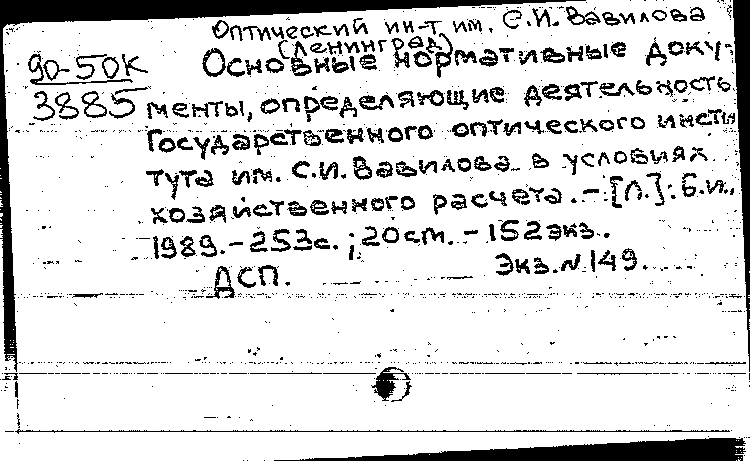 Оптический ин-т им. С.И. Вавилова
(Ленинград)
90-50К
3885
Основные нормативные доку-
менты, определяющие деятельность
Государственного оптического инсти
тута им. С.И. Вавилова в условиях
хозяйственного расчета. - [Л.]: Б.и.,
1989. - 253с.; 20см. - 152экз.
ДСП. Экз. N 149.